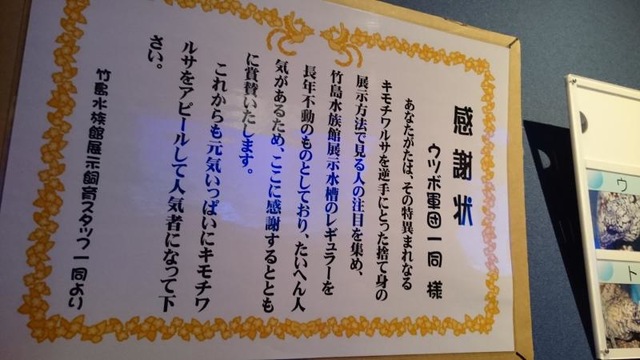 感謝状
ウツボ軍団一同 様
あなたがたは、その特異まれなる
キモチワルサを逆手にとった捨て身の
展示方法で見る人の注目を集め、
竹島水族館展示水槽のレギュラーを
長年不動のものとしており、たいへん人
気があるため、ここに感謝するととも
に賞賛いたします。
これからも元気いっぱいにキモチワ
ルサをアピールして人気者になって下
さい。
竹島水族館展示飼育スタッフ一同より
ウ
ト